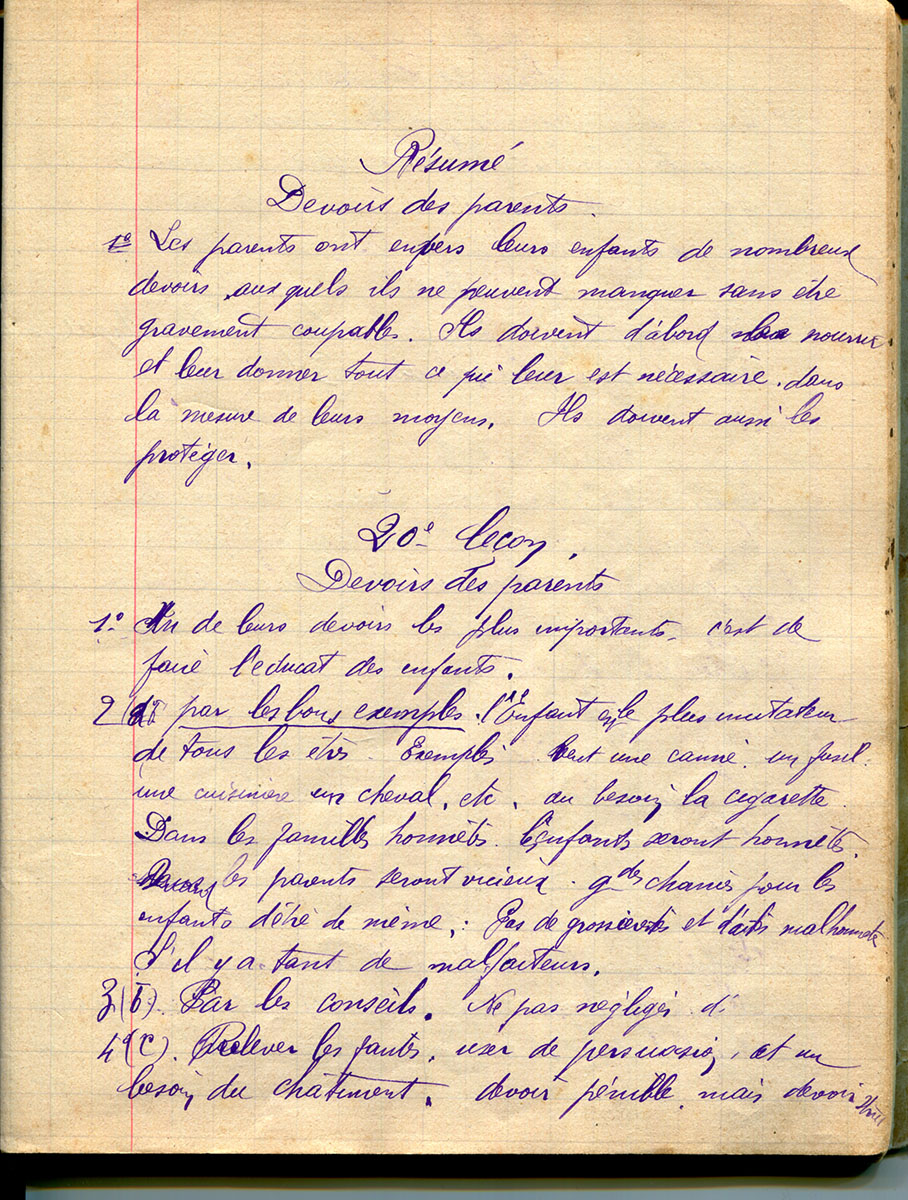 Résumé
Devoirs des parents.
1º Les parents ont envers leurs enfants de nombreux
devoirs auxquels ils ne peuvent manquer sans être
gravement coupables. Ils doivent d'abord nourrir
et leur donner tout ce qui leur est nécessaire. dans
la mesure de leurs moyens. Ils doivent aussi les
protéger.
20e leçon.
Devoirs des parents
1º Un de leurs devoirs les plus importants. c'est de
faire l'educat des enfants.
2 par les bons exemples. l'Enfant est le plus imitateur
de tous les êtres. Exemples veut une canne. un fusil.
une cuisinière un cheval, etc. au besoin la cigarette.
Dans les familles honnêtes. les enfants seront honnêtes.
les parents seront vicieux. gdes chances pour les
enfants d'être de même. Pas de grossièretés et d'actes malhonnêtes
S'il y a tant de malfaiteurs.
3 (b). Par les conseils. Ne pas négliger d'
4º (c). Relever les fautes, user de persuasion, et au
besoin du châtiment. devoir pénible, mais devoir